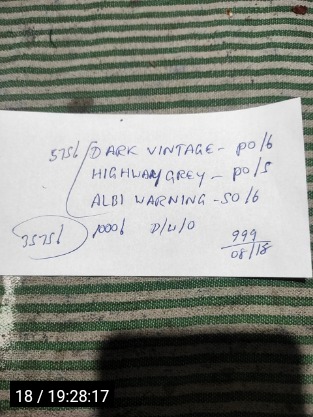 5756 DARK VINTAGE - PO/6
HIGHWAY GREY - PO/5
ALBI WARNING - SO/6
35756 1000/ D/U/O
999
08/18
18 / 19:28:17